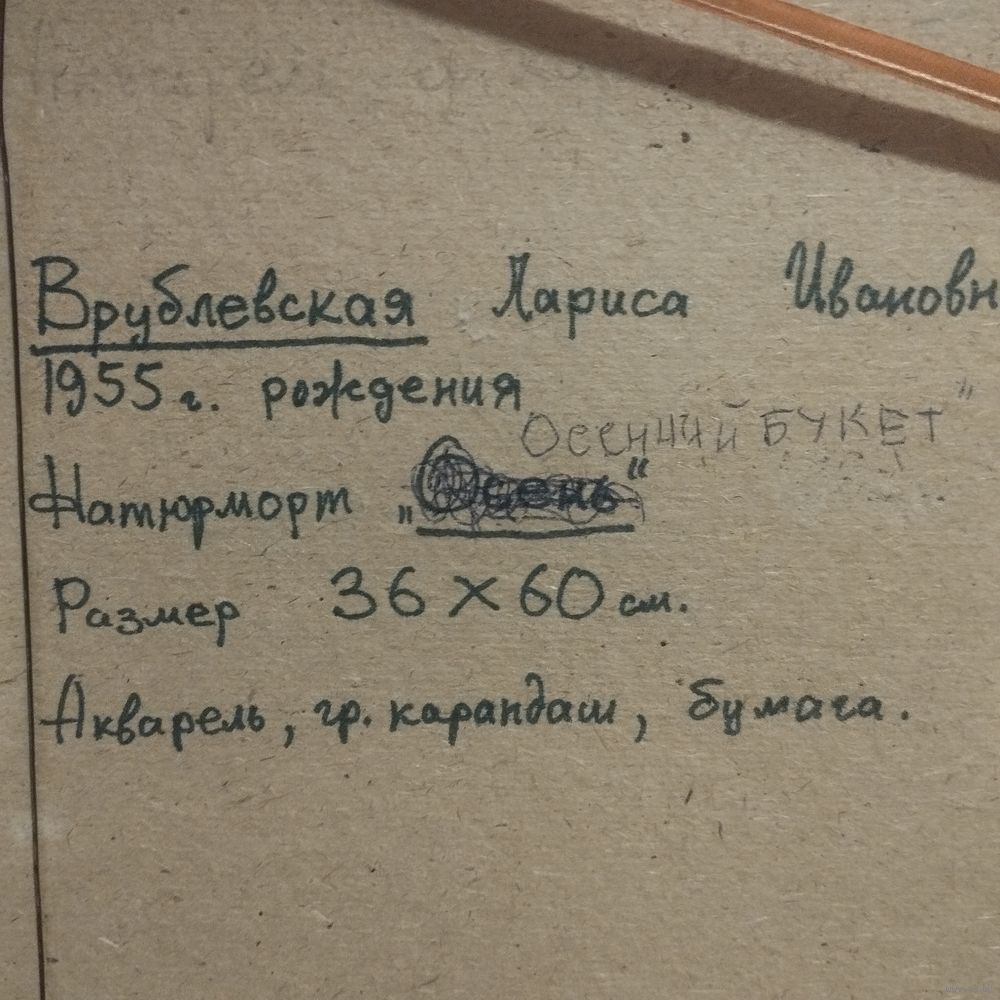 Врублевская Лариса Ивановн
1955 г. рождения
Осенний БУКЕТ"
Натюрморт „Осень“
Размер 36 × 60 см.
Акварель, гр. карандаш, бумага.